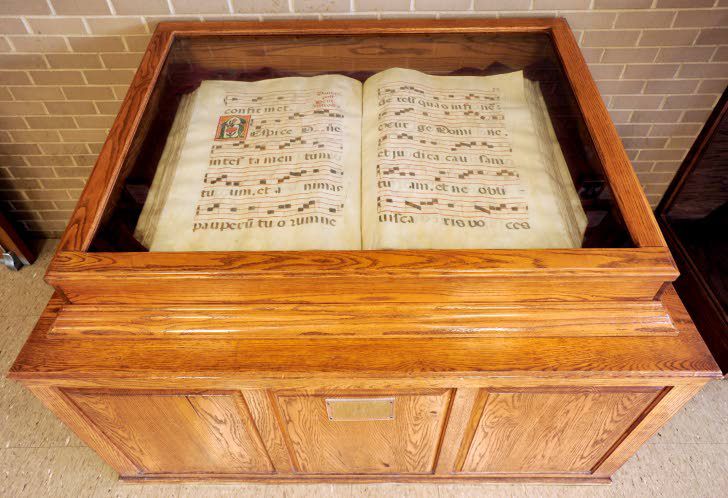 confit met.
Respice D ne
intes ta men tum
tu um, et a nimas
pauperū tu o rum ne
de reli quas in fi nē
exur ge Domi ne
et ju dica cau sam
tu am, et ne obli
uisca ris vo ces